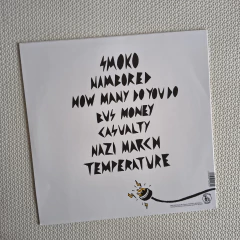 SMOKO
NAMBORED
HOW MANY DO YOU DO
BUS MONEY
CASUALTY
NAZI MARCH
TEMPERATURE